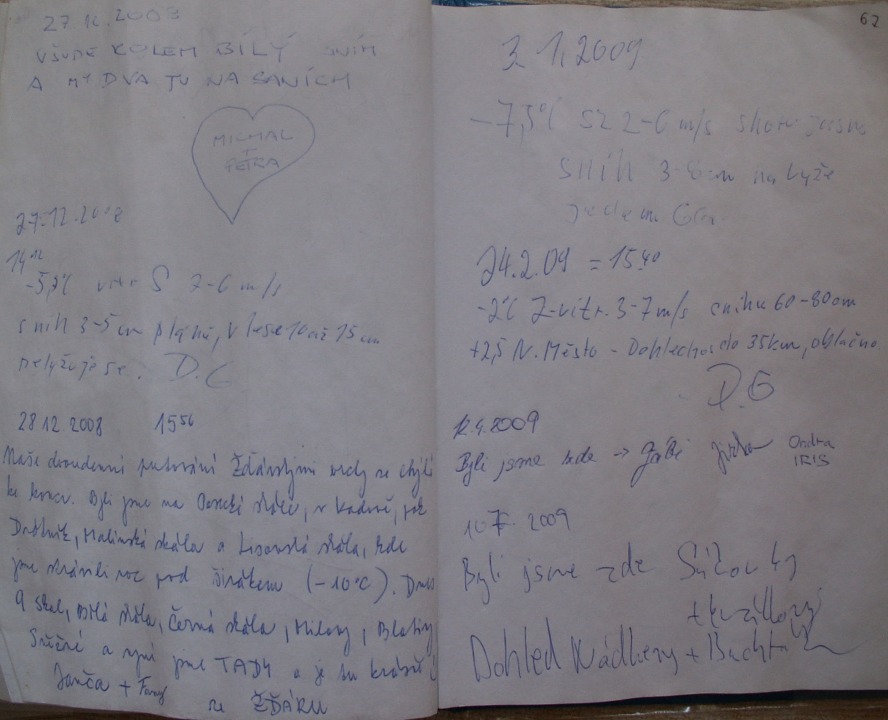 27.12.2008
VŠUDE KOLEM BÍLÝ SNÍH
A MY DVA TU NA SANÍCH
MICHAL
+
PETRA
27.12.2008
-5,7°C vítr S 2-6 m/s
sníh 3-5 cm plání, v lese 10 až 15 cm
nelyžuje se. D.G
28.12.2008 15 56
Naše dvoudenní putování Žďárskými vrchy se chýlí
ke konci. Byli jsme na skále, v Kadově, pak
Drátník, Malínská skála a Lisovská skála, kde
jsme strávili noc pod širákem (-10°C). Dnes
9 skal, Bílá skála, Černá skála, Milovy, Blatiny
a nyní jsme TADY a je tu krásně
Janča +
ze ŽĎÁRU
62
3.1.2009
-7,5°C SZ 2-6 m/s skoro jasno
sníh 3-8 cm na lyže
24.2.09 = 15 40
-2°C Z-vítr. 3-7 m/s sněhu 60-80cm
+2,5 N. Město - Dohlednost do 35km, oblačno
D.G
12.4.2009
Byli jsme zde → Jirka Ondra
IRIS
10.7. 2009
Byli jsme zde
+
Dohled Nádherný +